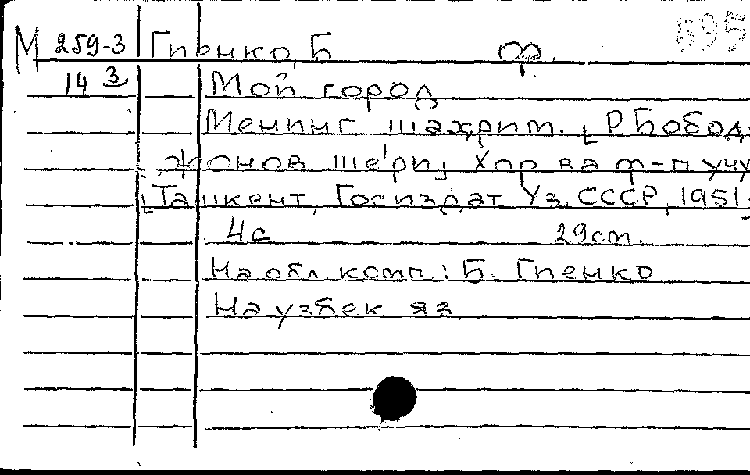 М 259-3 Гиенко, Б ф. 595
14 3 Мой город
Менинг шахрим. [Р. Бобод
жонов ше'ри] Хор ва ф-п учу
[Ташкент, Госиздат Уз. СССР, 1951.
4с 29cm.
На обл. комп.: Б. Гиенко
На узбек яз